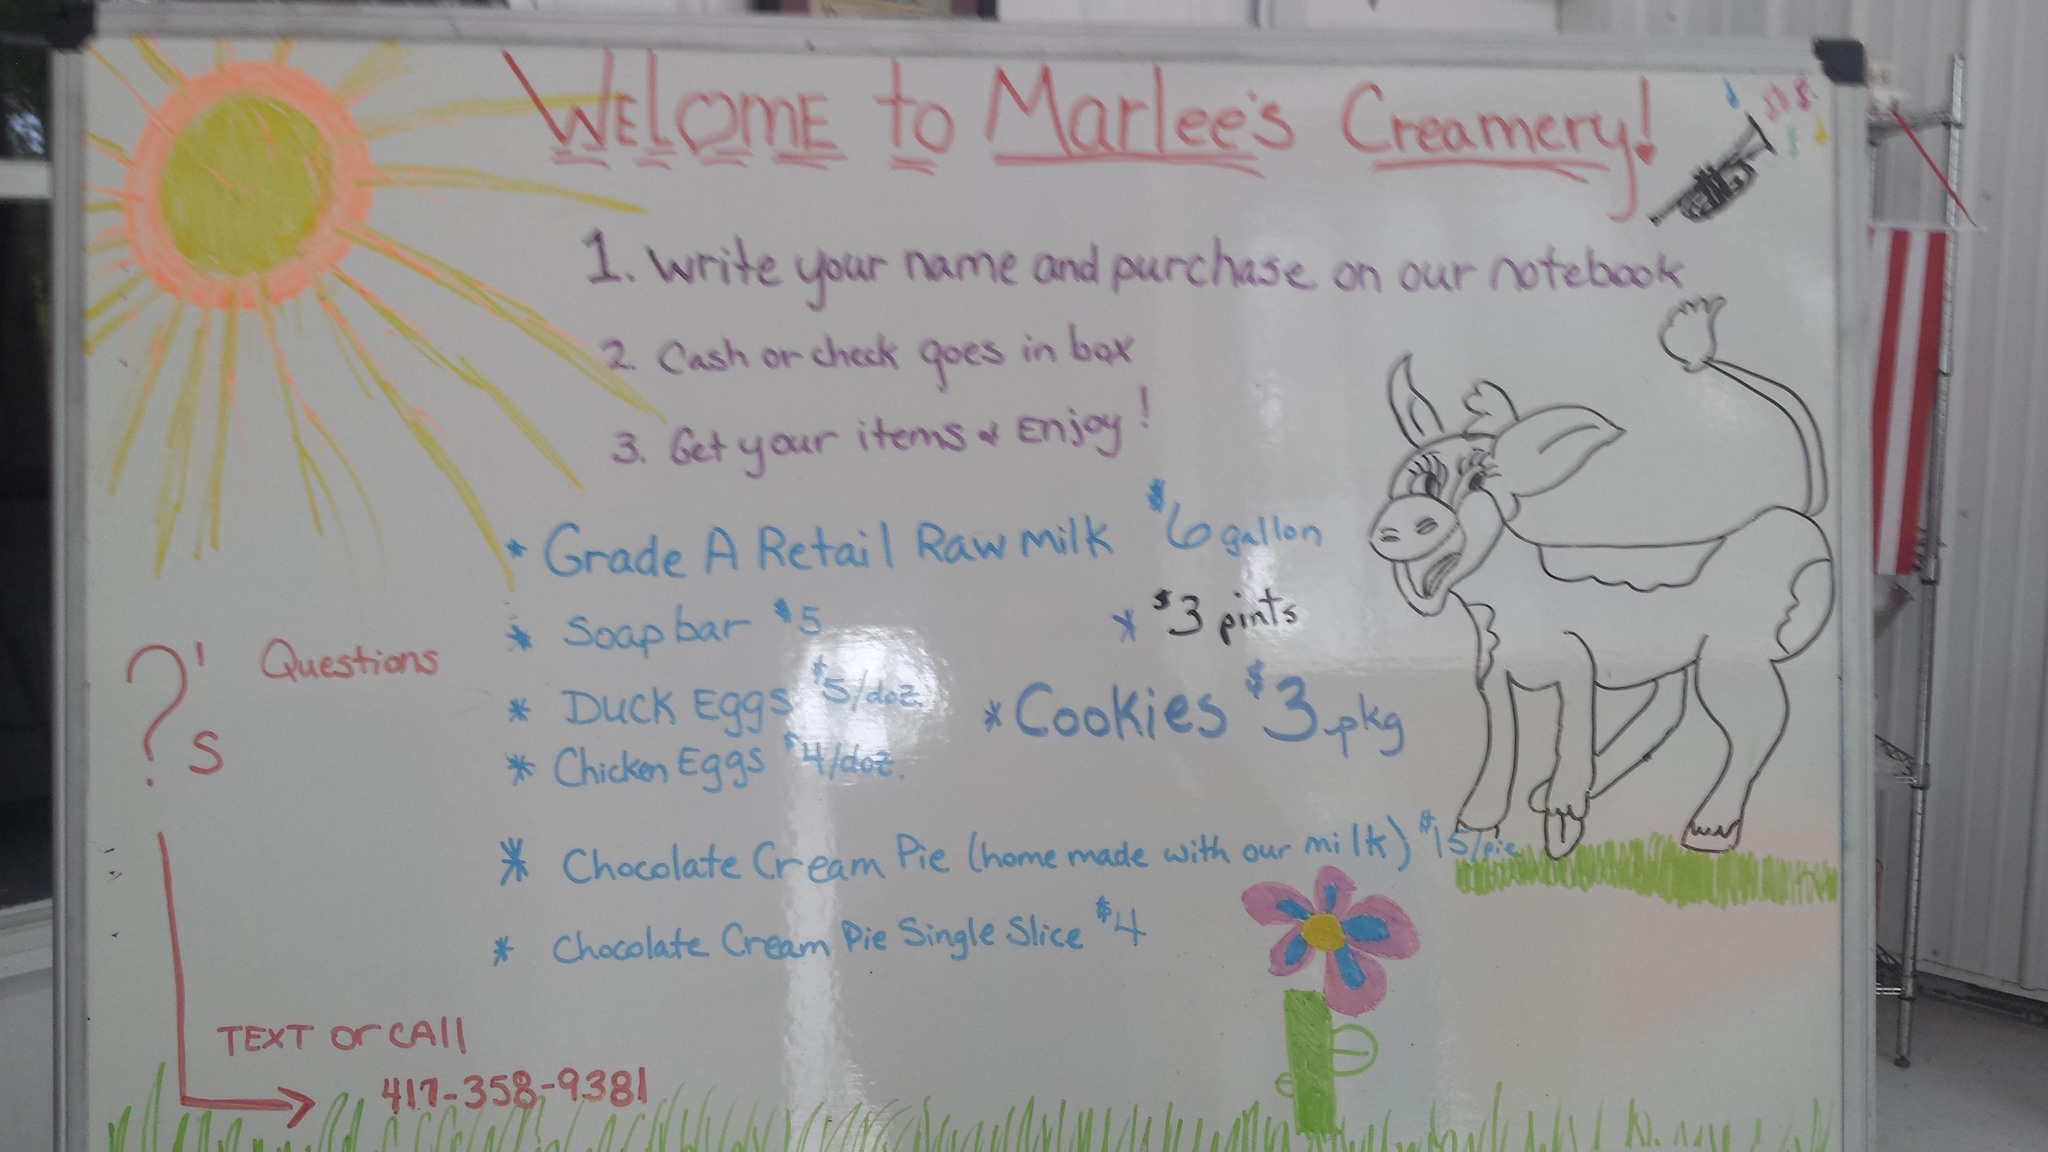 WELCOME to Marlee's Creamery!
1. Write your name and purchase on our notebook
2. Cash or check goes in box
3. Get your items & Enjoy!
* Grade A Retail Raw Milk $6 gallon
* $3 pints
* Soap bar $5
* Duck Eggs $5/doz.
* Cookies $3 pkg
* Chicken Eggs $4/doz.
* Chocolate Cream Pie (homemade with our milk) $15/pie
* Chocolate Cream Pie Single Slice $4
?'s Questions
TEXT or CAll
417-358-9381